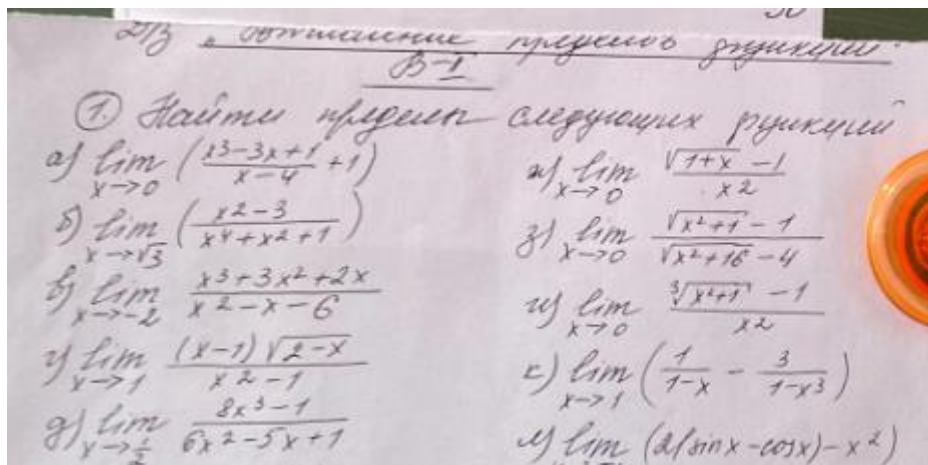 Д/з „ пределов функций"
В-I
1. Найти пределы следующих функций
а) lim x→0 (x3-3x+1 / x-4 + 1)
б) lim x→√3 (x2-3 / x4+x2+1)
в) lim x→-2 x3+3x2+2x / x2-x-6
г) lim x→1 (x-1)√2-x / x2-1
д) lim x→1/2 8x3-1 / 6x2-5x+1
ж) lim x→0 √1+x -1 / x2
з) lim x→0 √x2+1 -1 / √x2+16 -4
и) lim x→0 ∛x2+1 -1 / x2
к) lim x→1 (1 / 1-x - 3 / 1-x3)
л) lim (2(sinx-cosx)-x2)